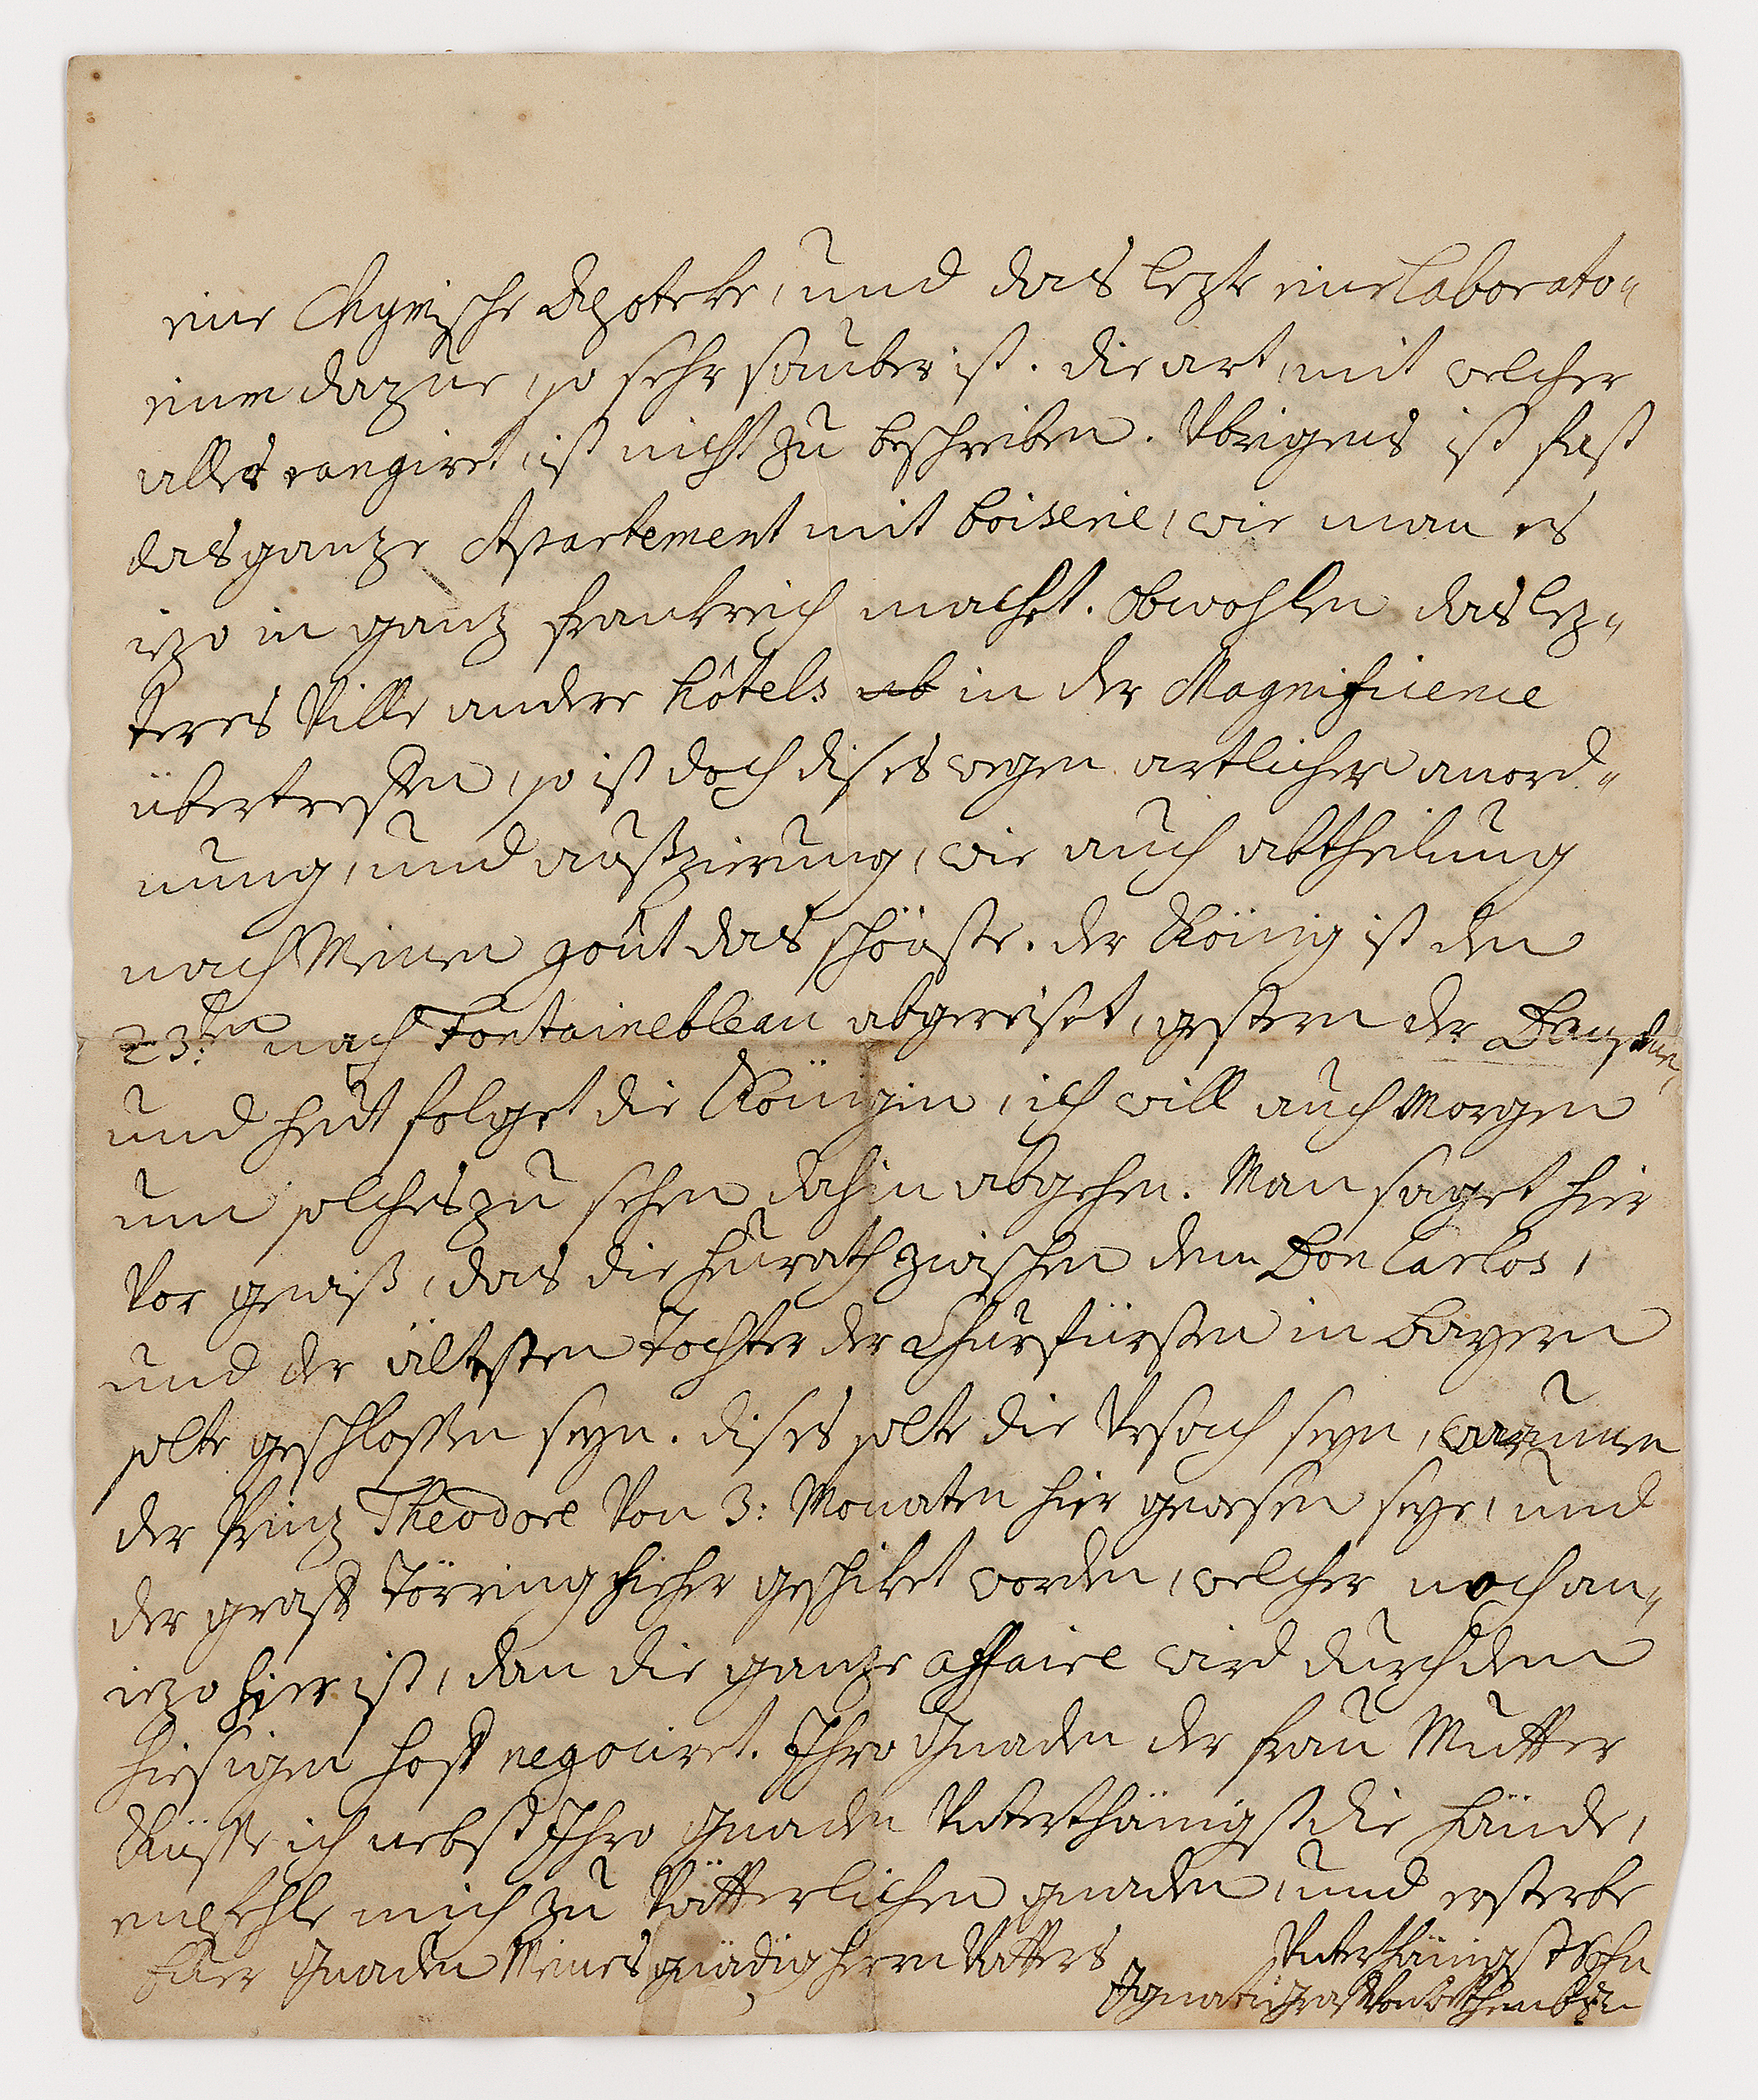 eine Chymische Apoteke, und das lezte eine laborato-
rium dazue, so sehr sauber ist. die art, mit welcher
alles rangiret, ist nicht zu beschreiben. Vbrigens ist fast
das ganze Apartement mit boiserie, wie man es
iezo in ganz frankreich machet. Obwohlen das lez-
teres Ville andere hôtels in der Magnificence
übertreffen, so ist doch dises wegen artlicher anord-
nung, und außzierung, wie auch abtheilung
nach Meinen goût das schönste. der König ist den
23:ten nach Fontainebleau abgereiset, gestern der
und heut folget die Königin, ich will auch Morgen
um solches zu sehen dahin abgehen. Man saget hier
Vor gewiß, das die heurath zwischen dem Don Carlos,
und der ältesten Tochter der Churfürsten in Bayern
solte geschlossen seyn. dises solte die Vrsach seyn, warumen
der Prinz Theodore Von 3: Monaten hier gewesen seye, und
der graff Törring hieher geschiket worden, welcher noch an-
iezo hier ist, dan die ganze affaire wird durch den
hiesigen hoff negociret. Ihro Gnaden der frau Mutter
Küsse ich nebst Ihro Gnaden Vnterthänigst die hände,
empfehle mich zu Vätterlichen gnaden, und ersterbe
Euer Gnaden Meines gnädig herrn Vatters
Vnterthänigst Sohn
Ignati graff Von